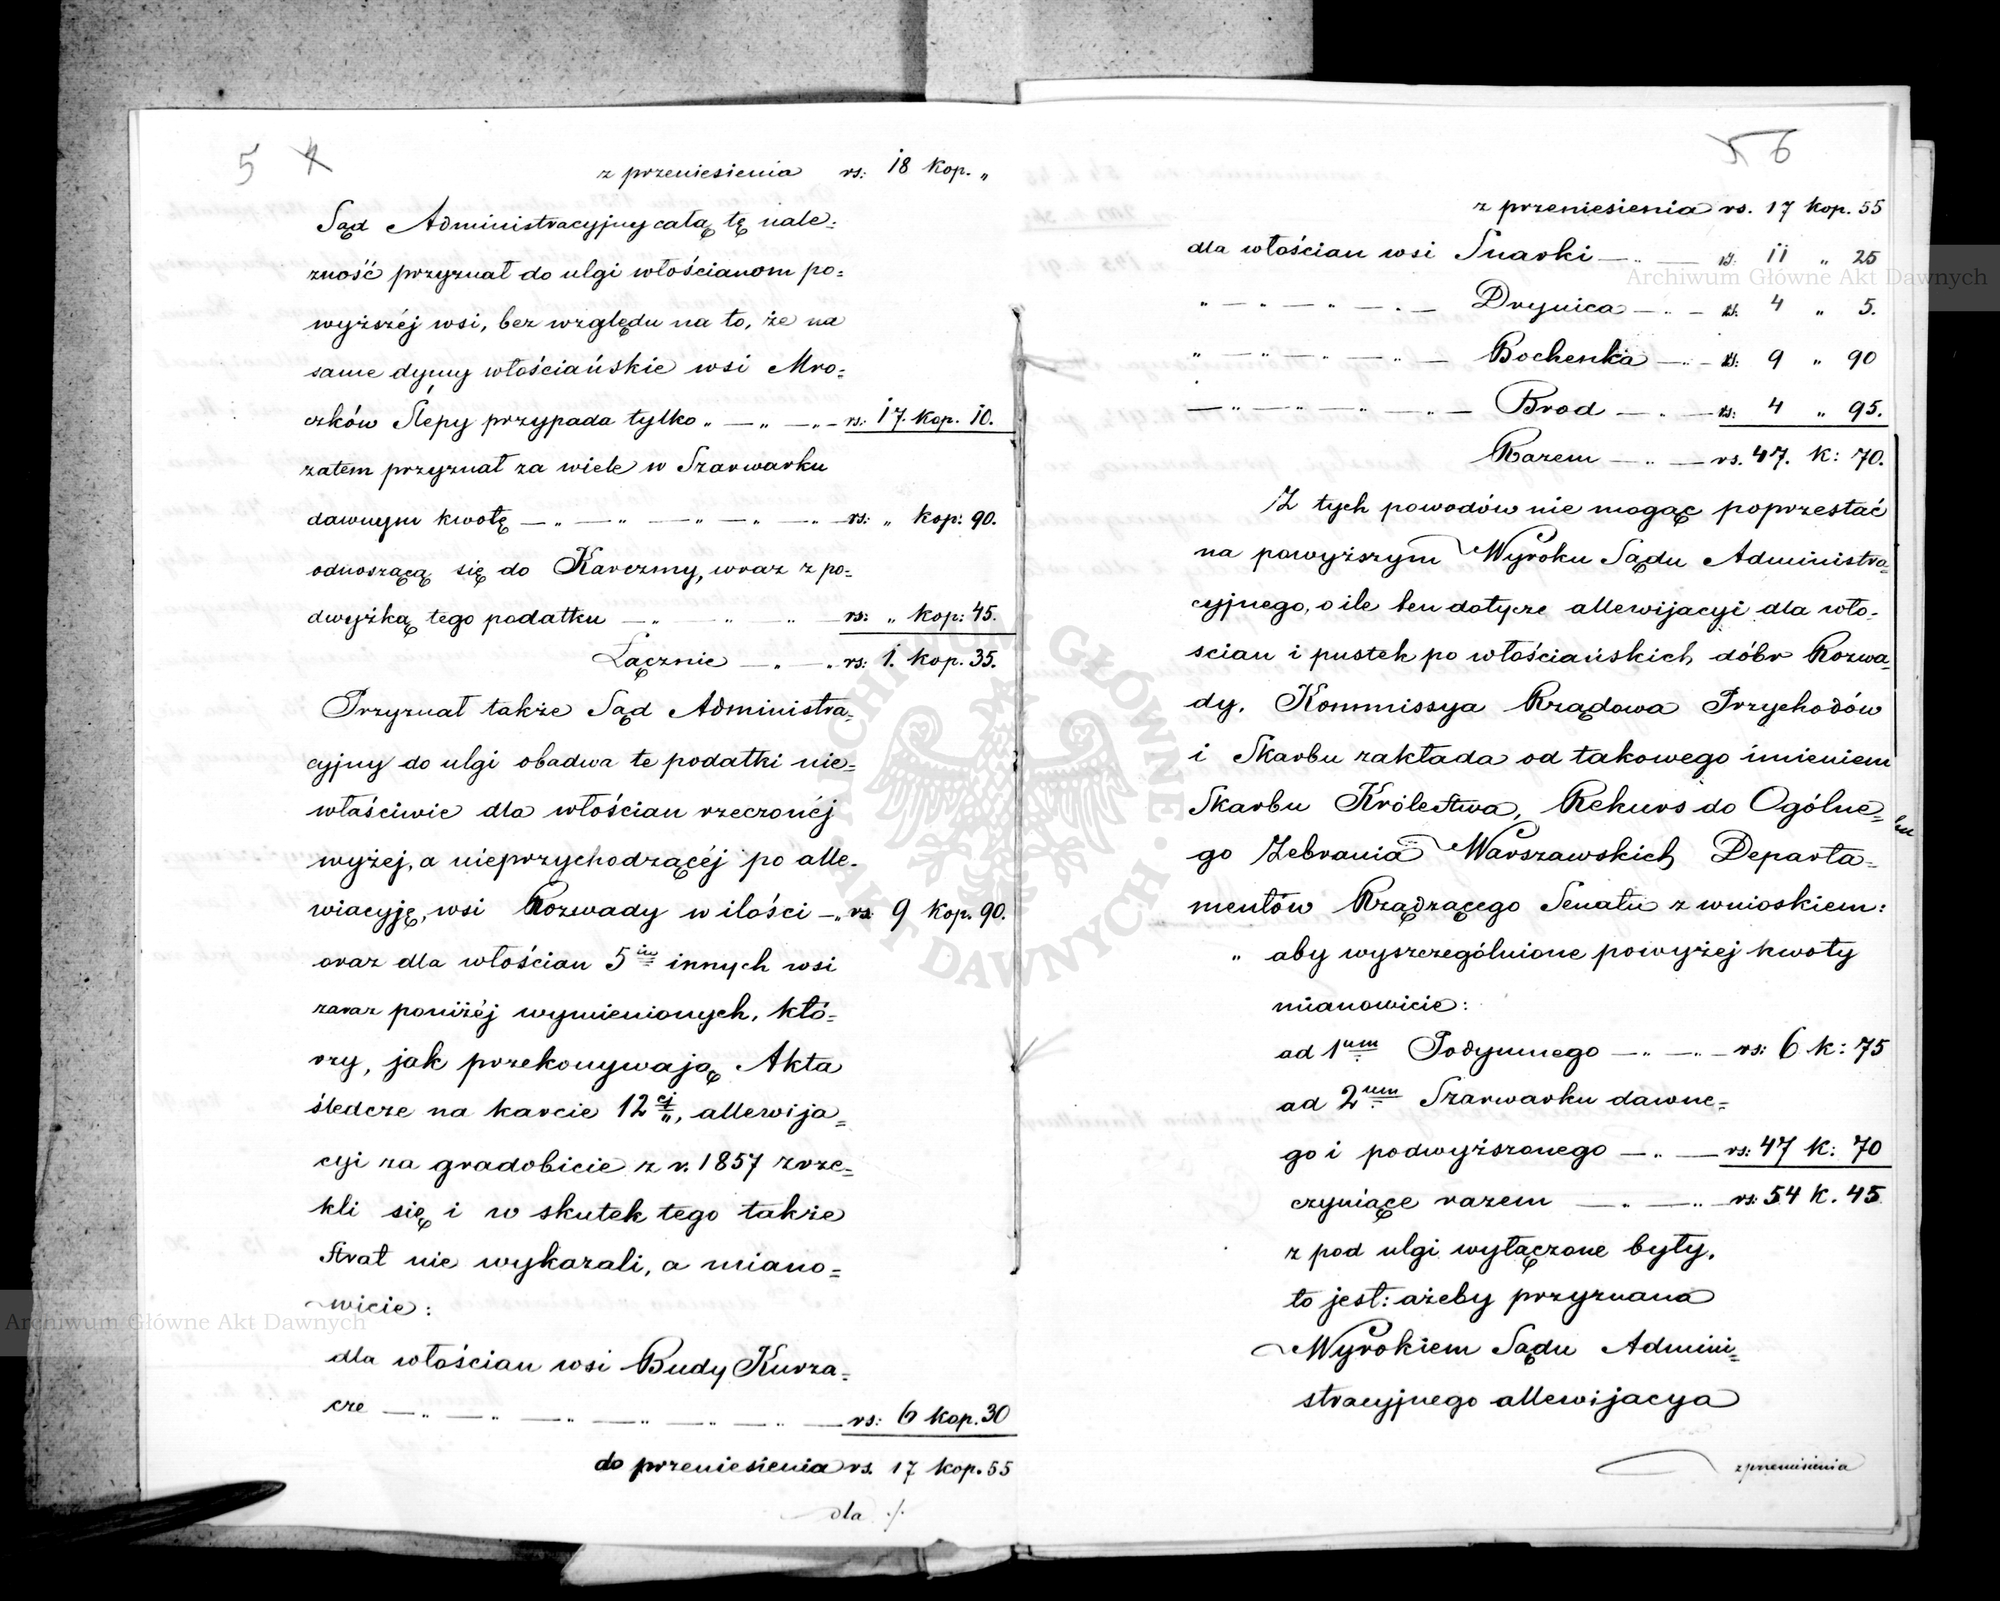 5 4
z przeniesienia rs: 18 kop. „
Sąd Administracyjny całą tę nale=
zność przyznał do ulgi włościanom po=
wyższéj wsi, bez względu na to, że na
same dymy włościańskie wsi Mro=
czków Slépy przypada tylko „ — „ — „ — rs: 17. kop. 10.
zatem przyznał za wiele w Szarwarku
dawnym kwotę — „ — „ — „ — „ — „ — rs: „ kop: 90.
odnoszącą się do Karczmy, wraz z po=
dwyżką tego podatku — „ — „ — „ — rs: „ kop: 45.
Łącznie — „ — „ rs: 1. kop. 35.
Przyznał także Sąd Administra=
cyjny do ulgi obadwa te podatki nie=
właściwie dla włościan rzeczonéj
wyżej, a nieprzychodzącéj po alle=
wiacyję, wsi Rozwady w ilości — „ rs: 9 kop. 90.
oraz dla włościan 5iu innych wsi
zaraz poniżéj wymienionych, któ=
rzy, jak przekonywają Akta
śledcze na karcie 12ej „, allewija=
cyi za gradobicie z r. 1857 zrze=
kli się i w skutek tego także
strat nie wykazali, a miano=
wicie:
dla włościan wsi Budy Kurza=
cze — „ — „ — „ — „ — „ — „ — rs: 6 kop. 30
do przeniesienia rs. 17 kop. 55
dla ./.
5 6
z przeniesienia rs. 17 kop. 55
dla włościan wsi Snarki — „ — rs: 11 „ 25
„ — „ — „ — „ — Drynica — „ — rs: 4 „ 5.
„ — „ — „ — „ — Bochenka — „ — rs: 9 „ 90
— „ — „ — „ — „ — Brod — „ — rs: 4 „ 95.
Razem — „ — rs. 47. k: 70.
Z tych powodów nie mogąc poprzestać
na powyższym Wyroku Sądu Administra=
cyjnego, o ile ten dotycze allewijacyi dla wło=
scian i pustek po włościańskich dóbr Rozwa=
dy, Kommissya Rządowa Przychodów
i Skarbu zakłada od takowego imieniem
Skarbu Królestwa, Rekurs do Ogólne=
go Zebrania Warszawskich Departa=
mentów Rządzącego Senatu z wnioskiem:
„ aby wyszczególnione powyżej kwoty
mianowicie:
ad 1um Podymnego — „ — „ — rs: 6 k: 75
ad 2um Szarwarku dawne=
go i podwyższonego — „ — rs: 47 k: 70
czyniące razem — „ — „ — rs: 54 k. 45
z pod ulgi wyłączone były,
to jest: ażeby przyznana
Wyrokiem Sądu Admini=
stracyjnego allewijacya
z przeniesienia
Archiwum Główne Akt Dawnych
Archiwum Główne Akt Dawnych
ARCHIWUM GŁÓWNE AKT DAWNYCH